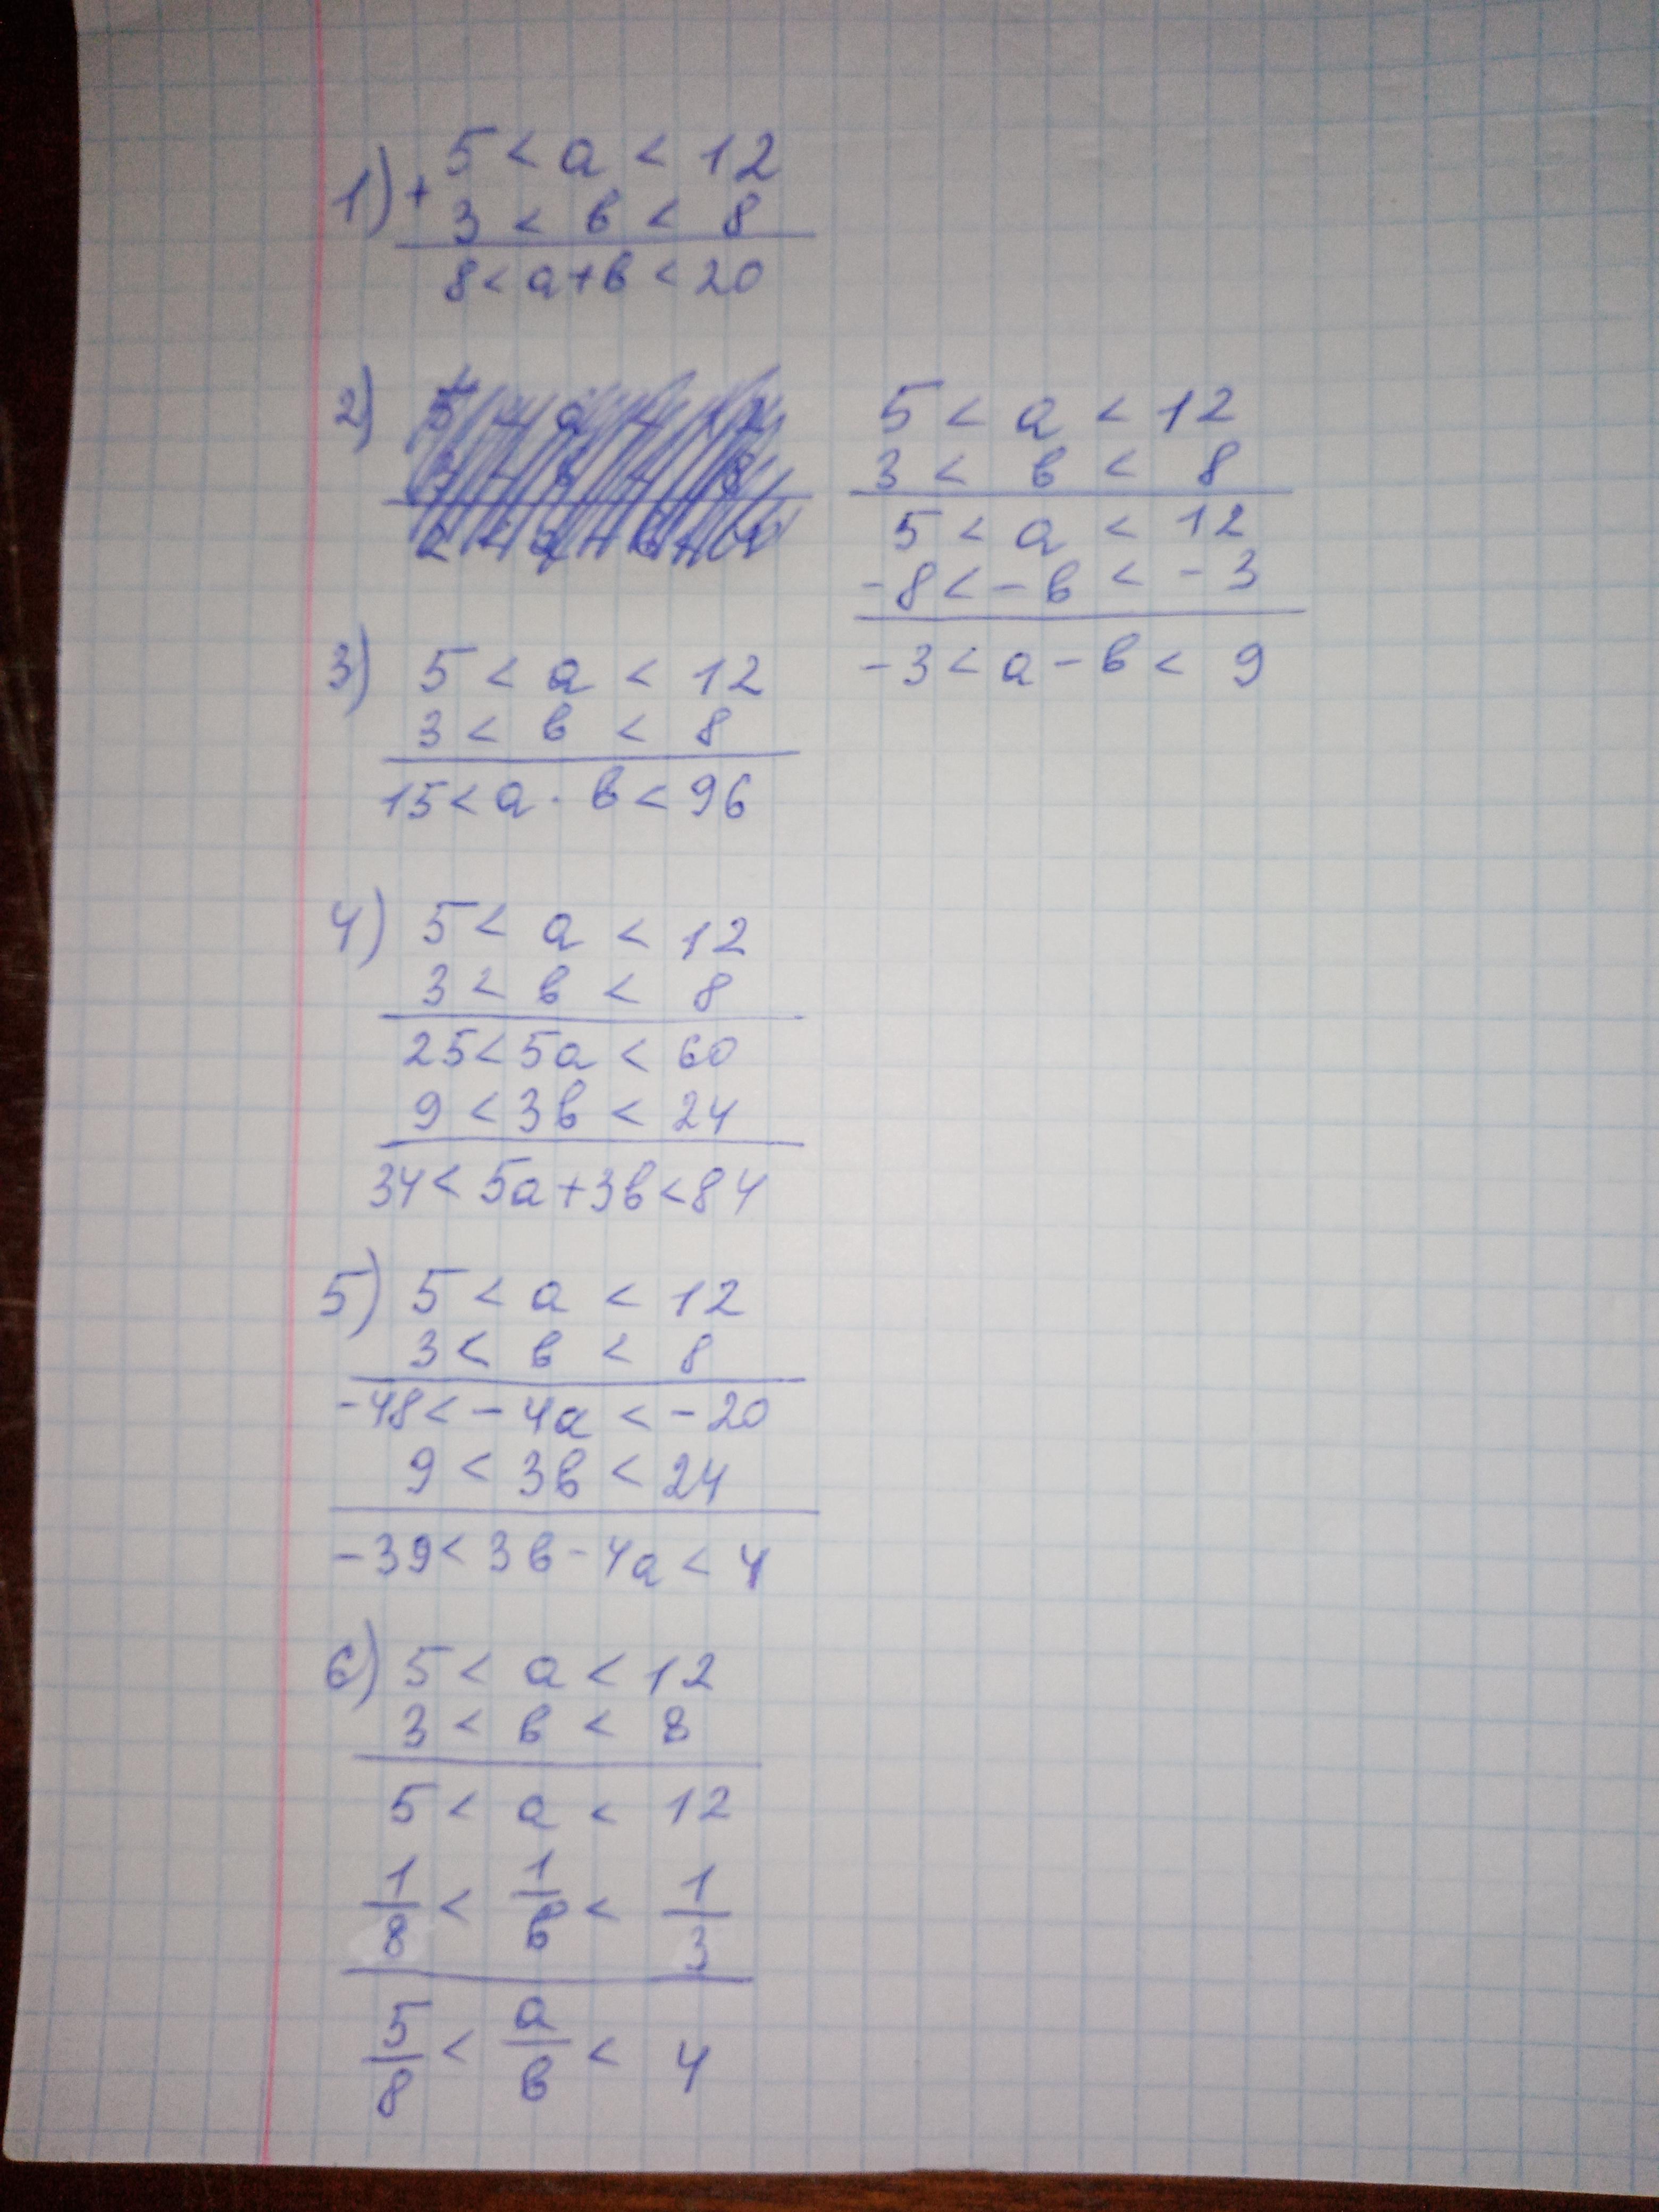 1) + 5 < a < 12
3 < в < 8
8 < a + в < 20
2)
5 < a < 12
3 < в < 8
5 < a < 12
-8 < -в < -3
-3 < a - в < 9
3) 5 < a < 12
3 < в < 8
15 < a · в < 96
4) 5 < a < 12
3 < в < 8
25 < 5a < 60
9 < 3в < 24
34 < 5a + 3в < 84
5) 5 < a < 12
3 < в < 8
-48 < -4a < -20
9 < 3в < 24
-39 < 3в - 4a < 4
6) 5 < a < 12
3 < в < 8
5 < a < 12
1/8 < 1/в < 1/3
5/8 < a/в < 4